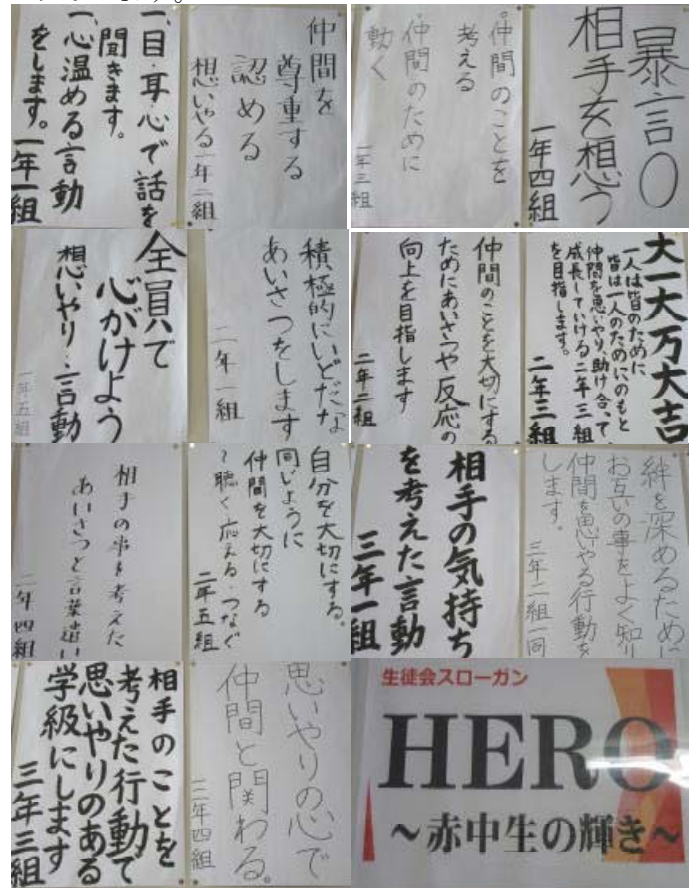 一、目・耳・心で話を
聞きます。
一、心温める言動
をします。
一年一組
仲間を
尊重する
認める
想いやる
一年二組
・仲間のことを
考える
・仲間のために
動く
一年三組
暴言〇
相手を想う
一年四組
全員で
心がけよう
想いやり・言動
一年五組
積極的にいどだな
あいさつをします
二年一組
仲間のことを大切にする
ためにあいさつや反応の
向上を目指します
二年二組
大一大万大吉
一人は皆のために
皆は一人のためにのもと
仲間を思いやり、助け合って
成長していける二年三組
を目指します。
二年三組
相手の事を考えた
あいさつと言葉遣い
二年四組
自分を大切にする。
同じように
仲間を大切にする
〜聴く 応える つなぐ
二年五組
相手の気持ち
を考えた言動
三年一組
絆を深めるために
お互いの事をよく知り
仲間を思いやる行動を
します。
三年二組一同
相手のことを
考えた行動で
思いやりのある
学級にします
三年三組
思いやりの心で
仲間と関わる。
三年四組
生徒会スローガン
HERO
〜赤中生の輝き〜